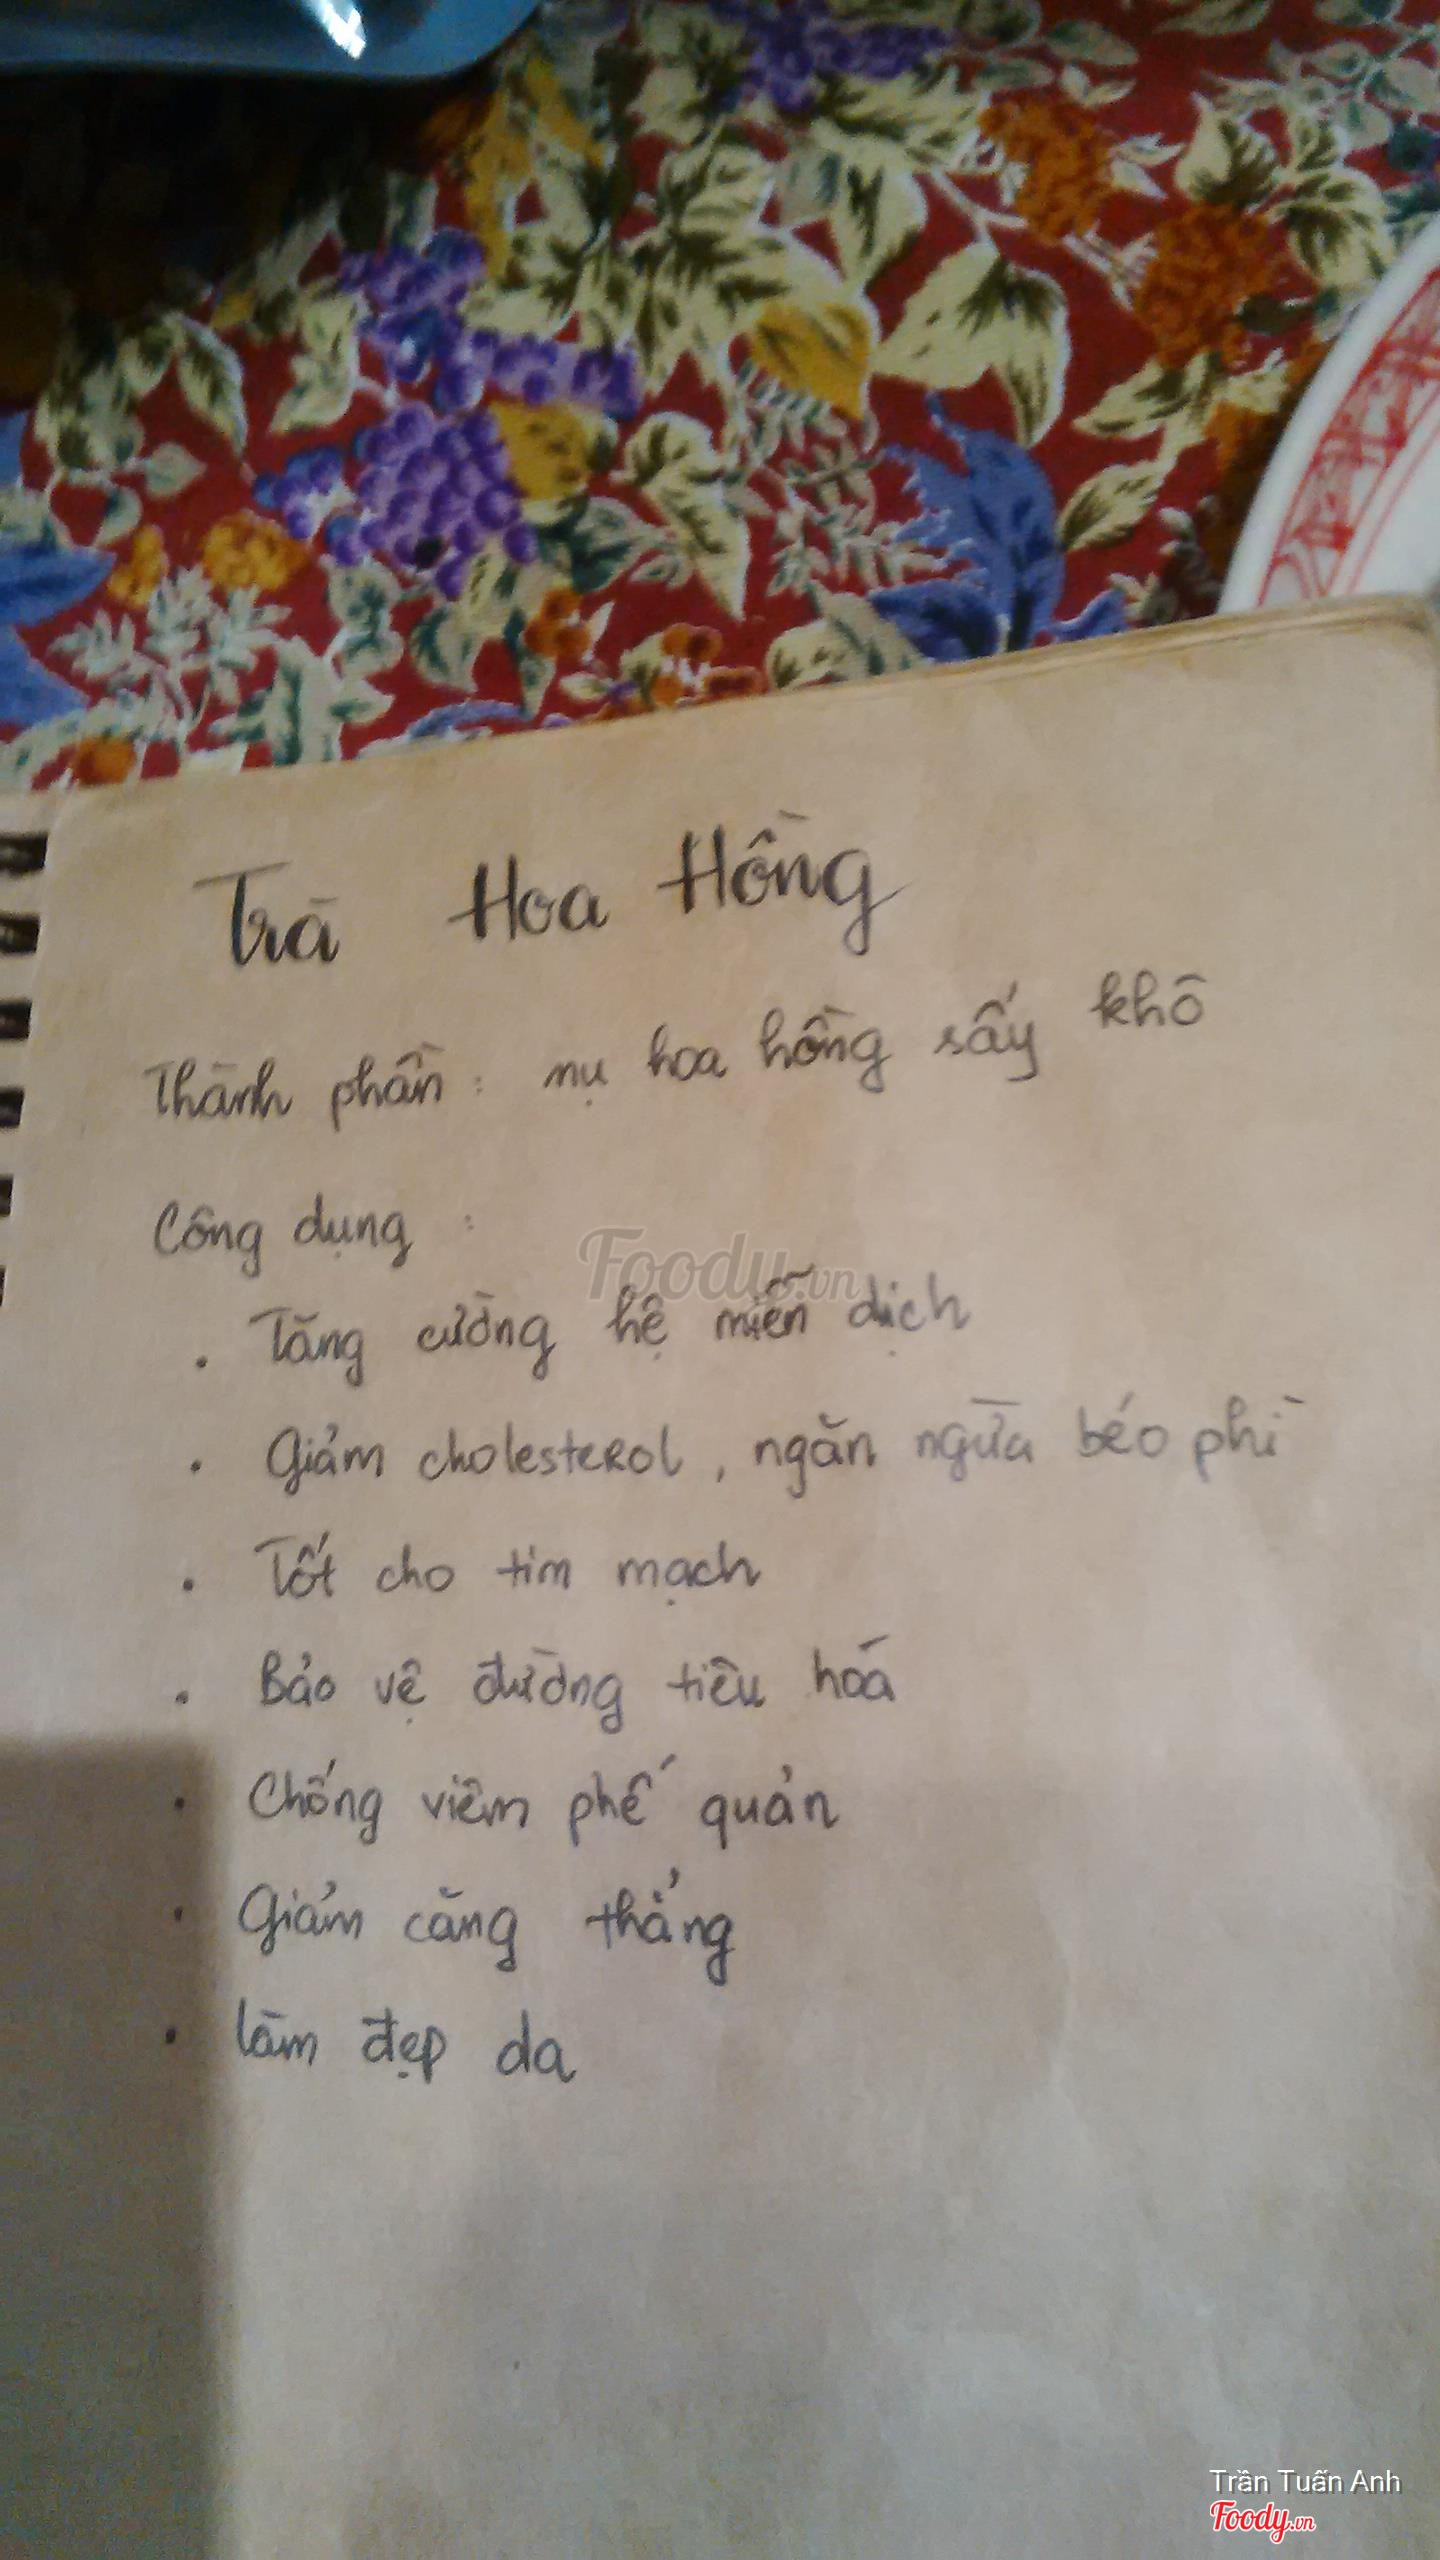 Trà Hoa Hồng
Thành phần : nụ hoa hồng sấy khô
Công dụng :
Foody.vn
• Tăng cường hệ miễn dịch
• Giảm cholesterol, ngăn ngừa béo phì
• Tốt cho tim mạch
• Bảo vệ đường tiêu hóa
• Chống viêm phế quản
• Giảm căng thẳng
• Làm đẹp da
Trần Tuấn Anh
Foody.vn